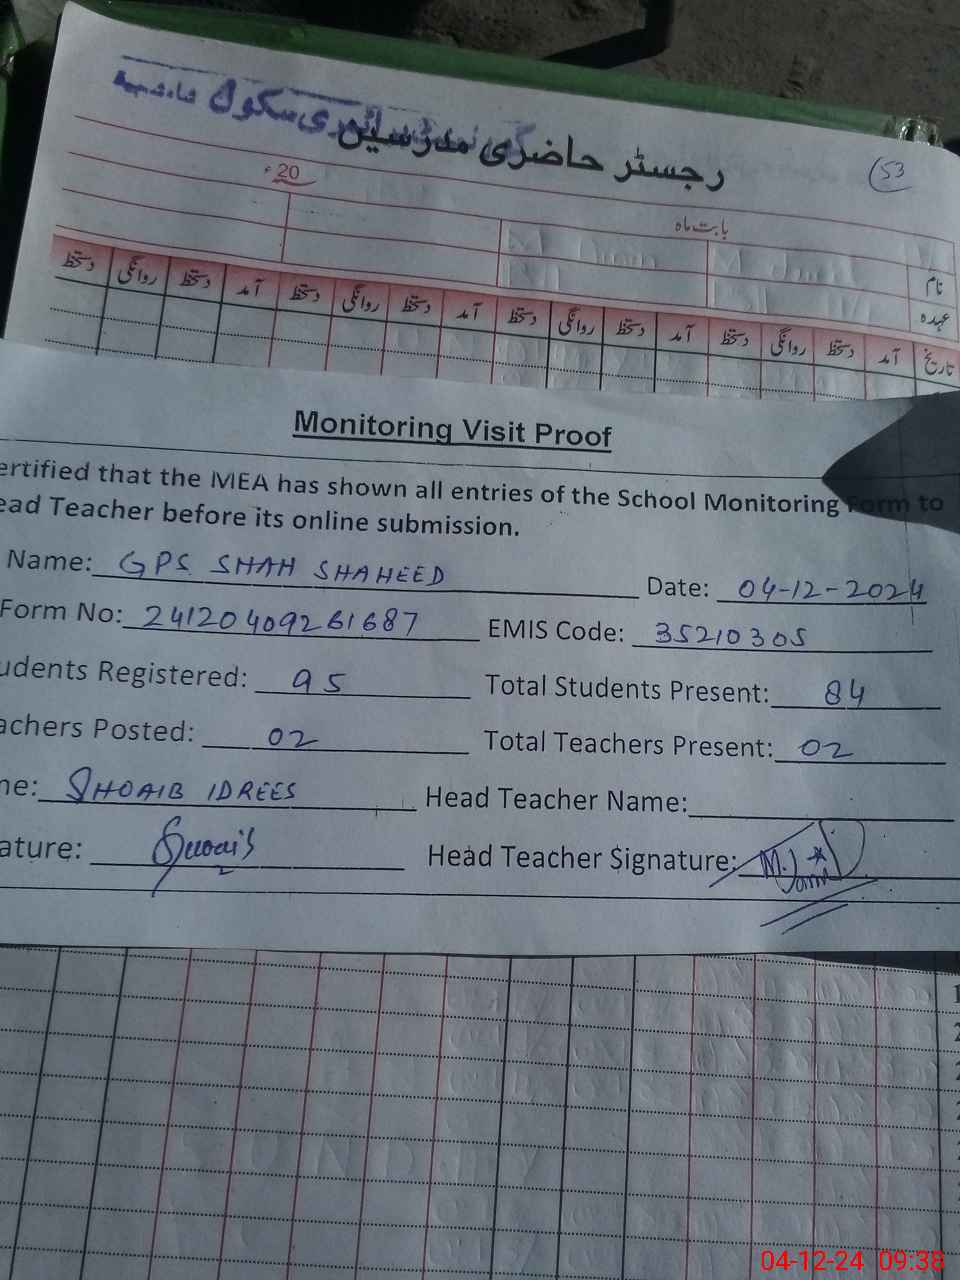 سکول
رجسٹر حاضری مدرسین
53
20ء
بابت ماہ
نام
عہدہ
تاریخ آمد دستخط روانگی دستخط آمد دستخط روانگی دستخط آمد دستخط روانگی دستخط آمد دستخط روانگی دستخط
Monitoring Visit Proof
ertified that the MEA has shown all entries of the School Monitoring Form to
ead Teacher before its online submission.
Name: GPS SHAH SHAHEED Date: 04-12-2024
Form No: 24120409261687 EMIS Code: 35210305
udents Registered: 95 Total Students Present: 84
achers Posted: 02 Total Teachers Present: 02
ne: SHOAIB IDREES Head Teacher Name:
ature: Shoaib Head Teacher Signature: M.
04-12-24 09:38